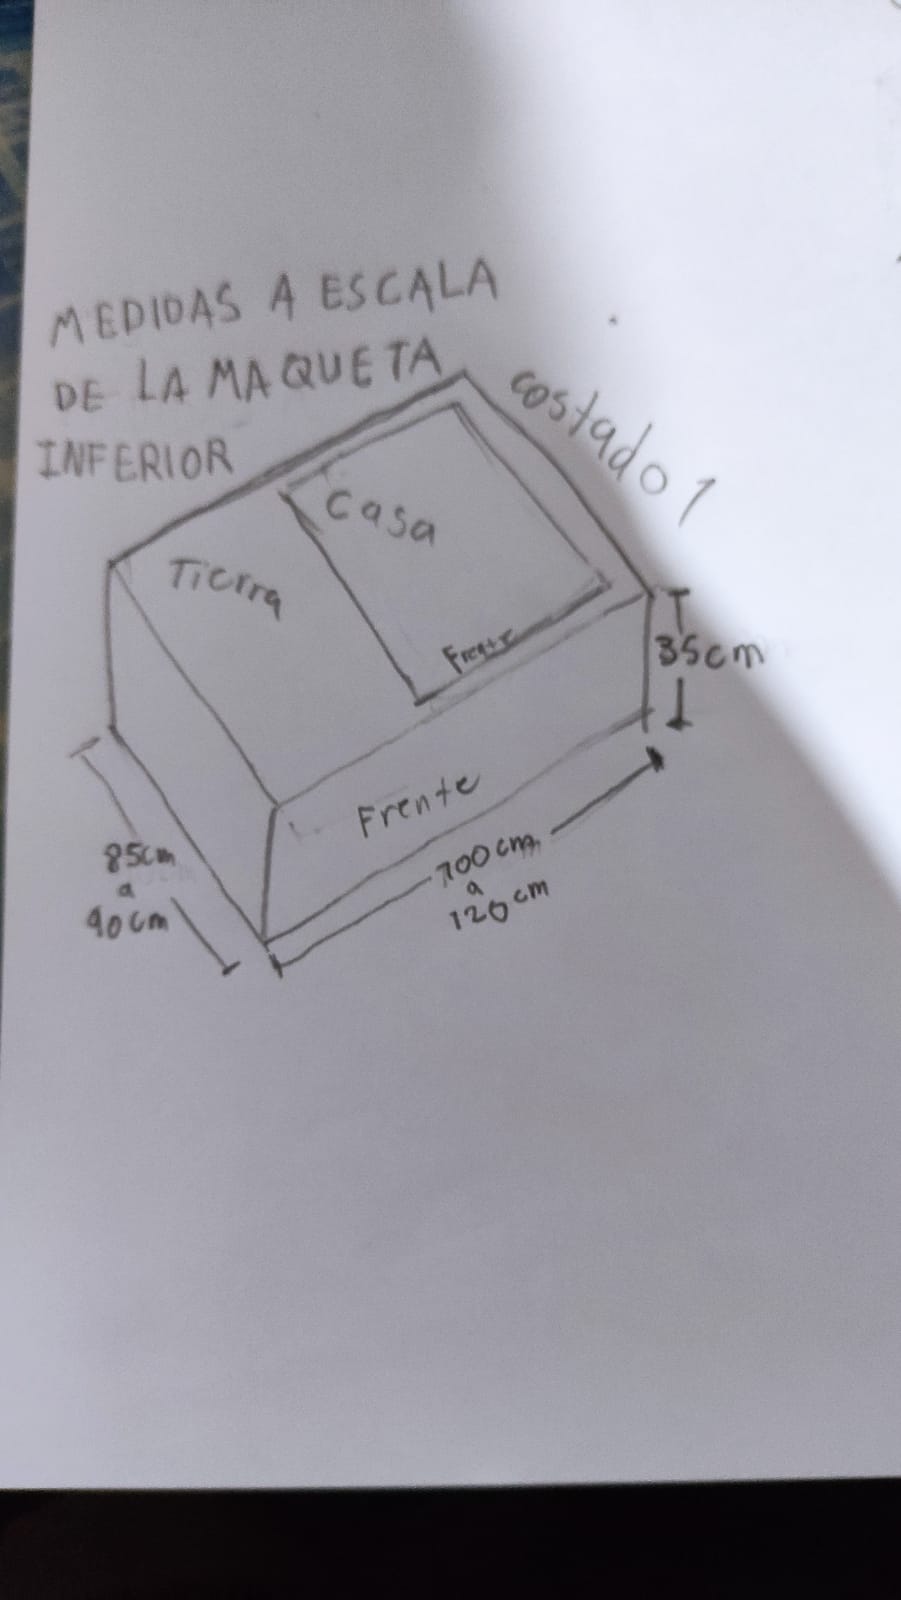 MEDIDAS A ESCALA
DE LA MAQUETA
INFERIOR
costado 1
Casa
Tierra
Frente
35cm
Frente
85cm
a
90cm
100cm
a
120cm